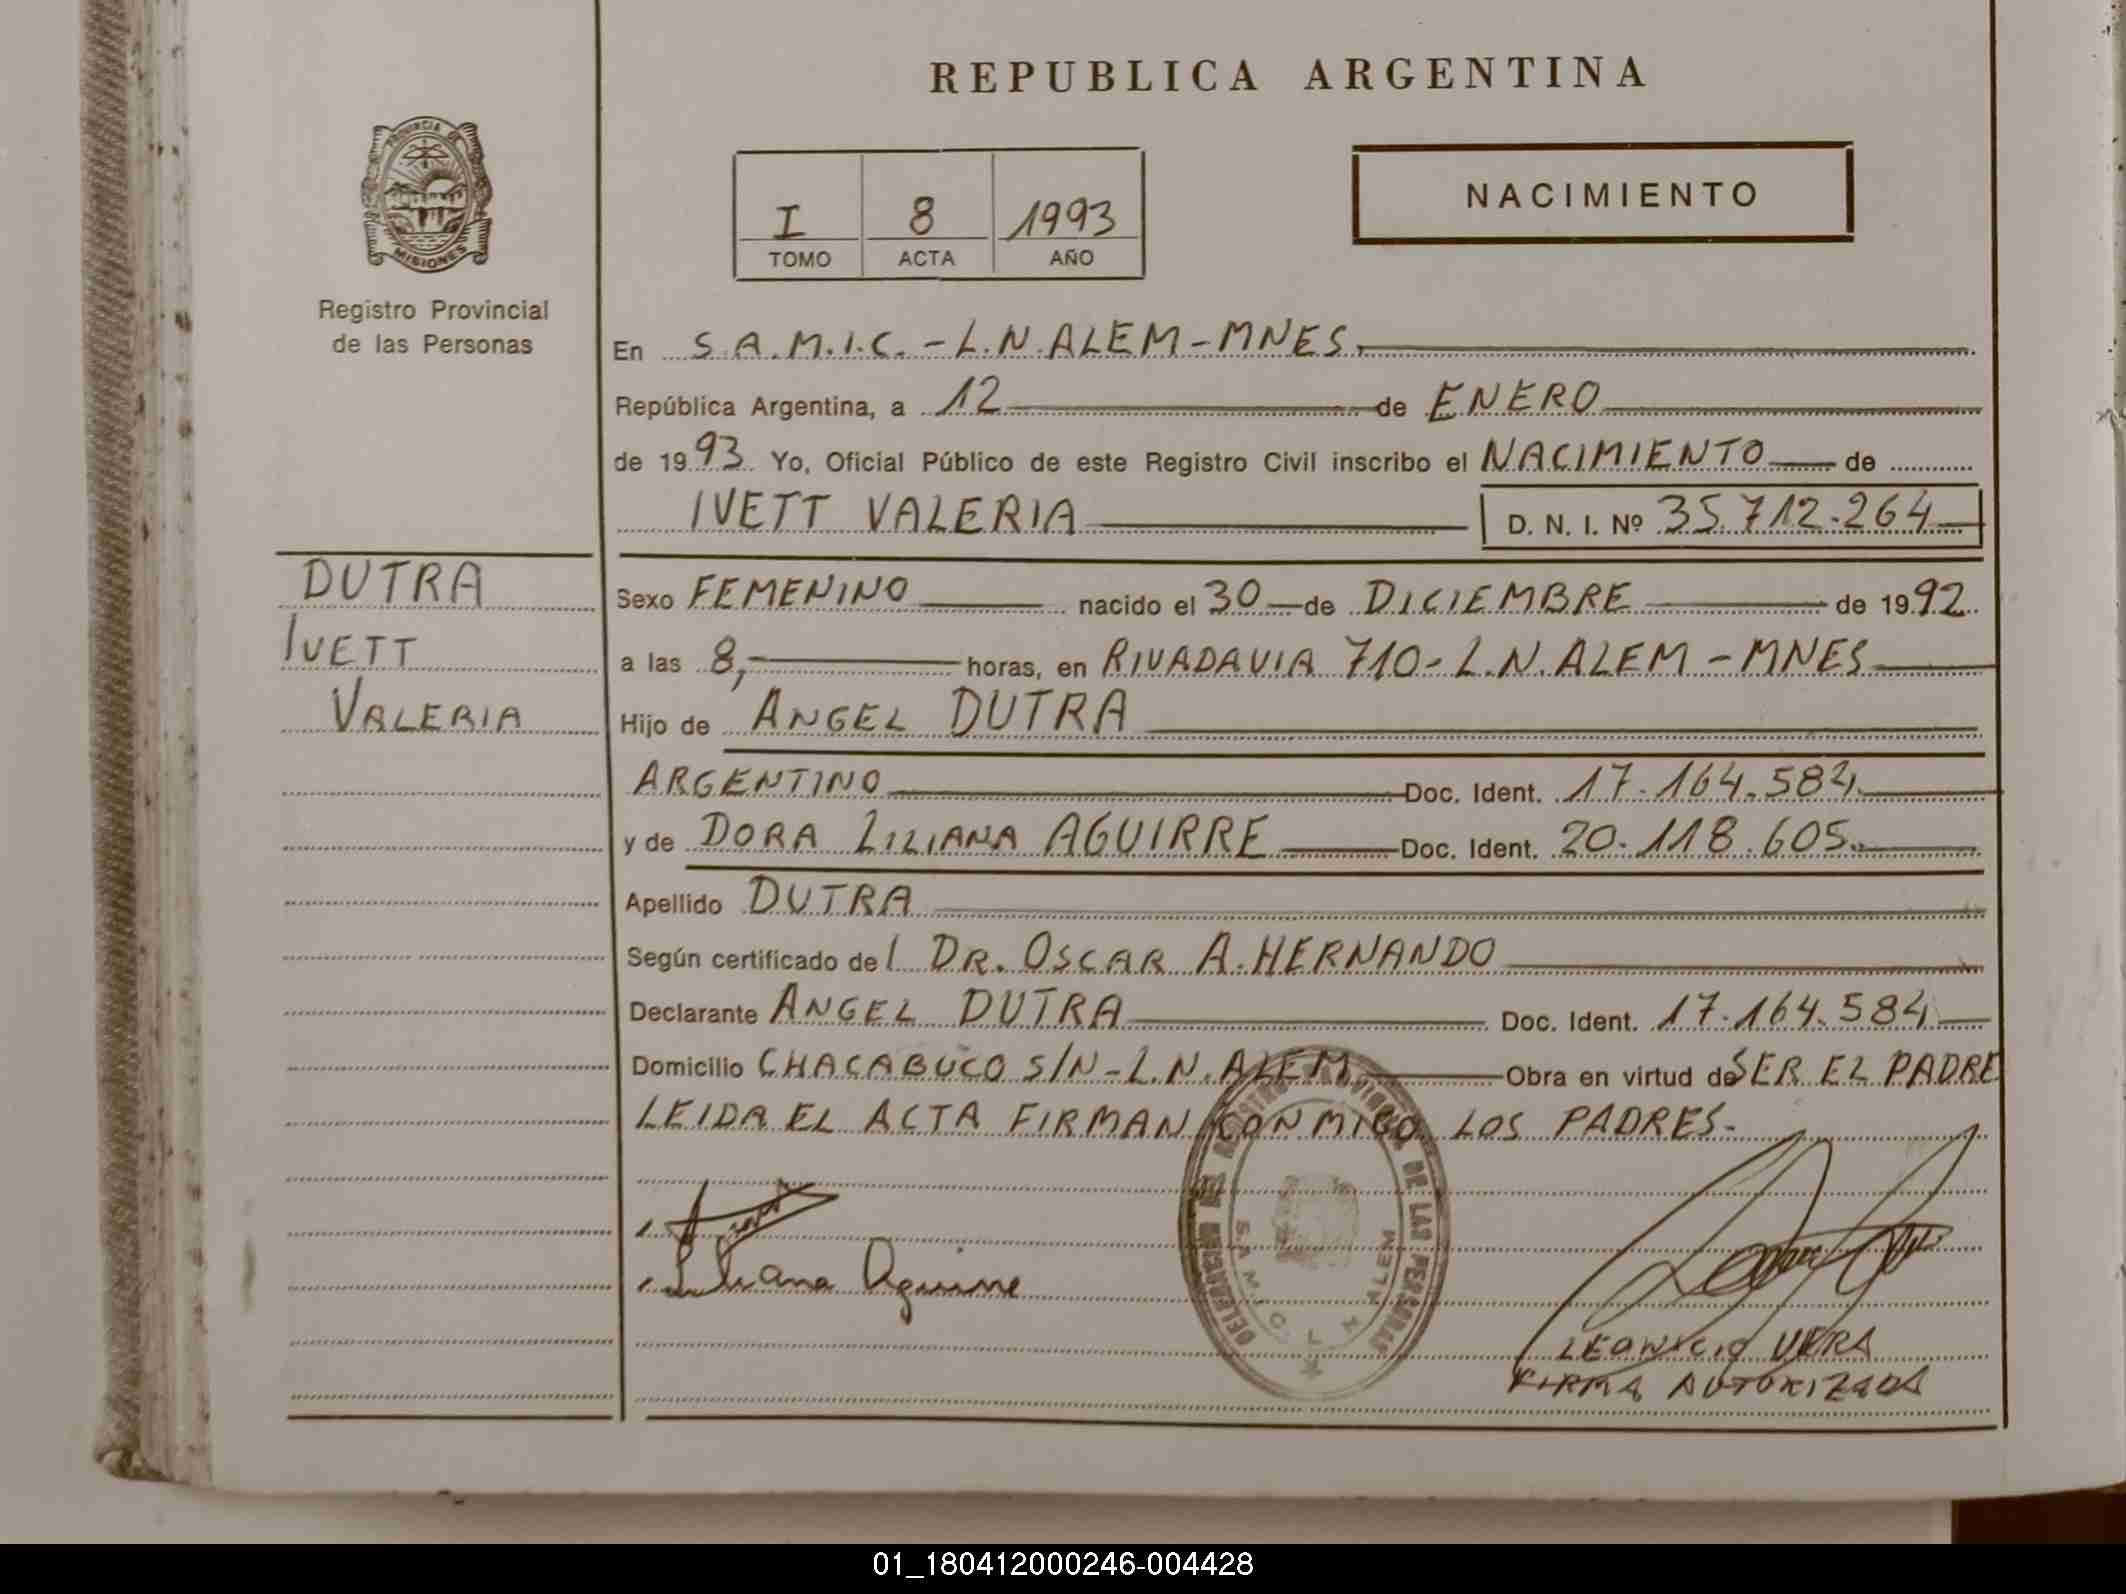 REPUBLICA ARGENTINA
PROVINCIA DE
MISIONES
Registro Provincial
de las Personas
I 8 1993
TOMO ACTA AÑO
NACIMIENTO
En S.A.M.I.C. - L.N. ALEM - MNES.
República Argentina, a 12 de ENERO
de 1993 Yo, Oficial Público de este Registro Civil inscribo el NACIMIENTO de
IVETT VALERIA D. N. I. Nº 35.712.264
DUTRA
IVETT
VALERIA
Sexo FEMENINO nacido el 30 de DICIEMBRE de 1992
a las 8, horas, en RIVADAVIA 710 - L.N. ALEM - MNES
Hijo de ANGEL DUTRA
ARGENTINO Doc. Ident. 17.164.584
y de DORA LILIANA AGUIRRE Doc. Ident. 20.118.605.
Apellido DUTRA
Según certificado del DR. OSCAR A. HERNANDO
Declarante ANGEL DUTRA Doc. Ident. 17.164.584
Domicilio CHACABUCO S/N - L.N. ALEM Obra en virtud de SER EL PADRE
LEIDA EL ACTA FIRMAN CONMIGO LOS PADRES.
Liliana Aguirre
DELEGACION DE REGISTRO PROVINCIAL DE LAS PERSONAS
S.A.M.I.C. L. N. ALEM
LEONICIO VERA
FIRMA AUTORIZADA
01_180412000246-004428